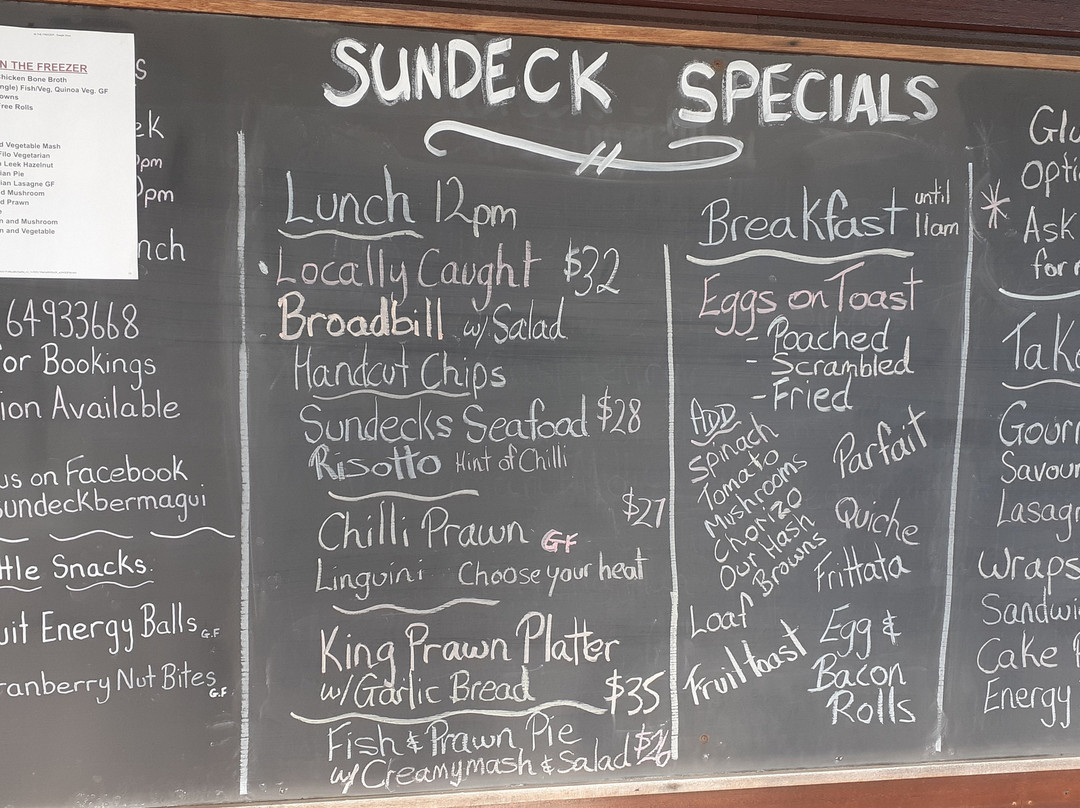 N THE FREEZER
hicken Bone Broth
ngle) Fish/Veg, Quinoa Veg. GF
owns
ree Rolls
d Vegetable Mash
Filo Vegetarian
Leek Hazelnut
ian Pie
ian Lasagne GF
d Mushroom
d Prawn
n and Mushroom
n and Vegetable
s
ek
pm
pm
nch
64933668
or Bookings
ion Available
us on Facebook
sundeckbermagui
ttle Snacks.
uit Energy Balls G.F
ranberry Nut Bites G.F
SUNDECK SPECIALS
Lunch 12pm
Locally Caught $32
Broadbill w/ Salad
Handcut Chips
Sundecks Seafood $28
Risotto Hint of Chilli
$27
Chilli Prawn GF
Linguini Choose your heat
King Prawn Platter
w/ Garlic Bread $35
Fish & Prawn Pie
w/ Creamymash & Salad $26
Breakfast until 11am
Eggs on Toast
- Poached
- Scrambled
- Fried
ADD
Spinach
Tomato
Mushrooms
Chorizo
Our Hash
Browns
Loaf
Fruit toast
Parfait
Quiche
Frittata
Egg &
Bacon
Rolls
* Glu
Opti
Ask
for
Take
Gour
Savour
Lasag
Wraps
Sandwi
Cake
Energy